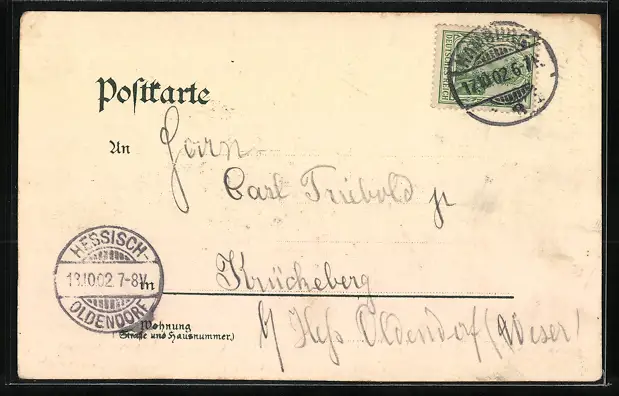 Postkarte
DEUTSCHES REICH
HAMBURG
12.10.02 6-7N.
An
Herrn
Carl Triebold jr
HESSISCH-
13.10.02 7-8V.
OLDENDORF
in
Krückeberg
Wohnung
(Straße und Hausnummer.)
b/ Hess Oldendorf (Weser)